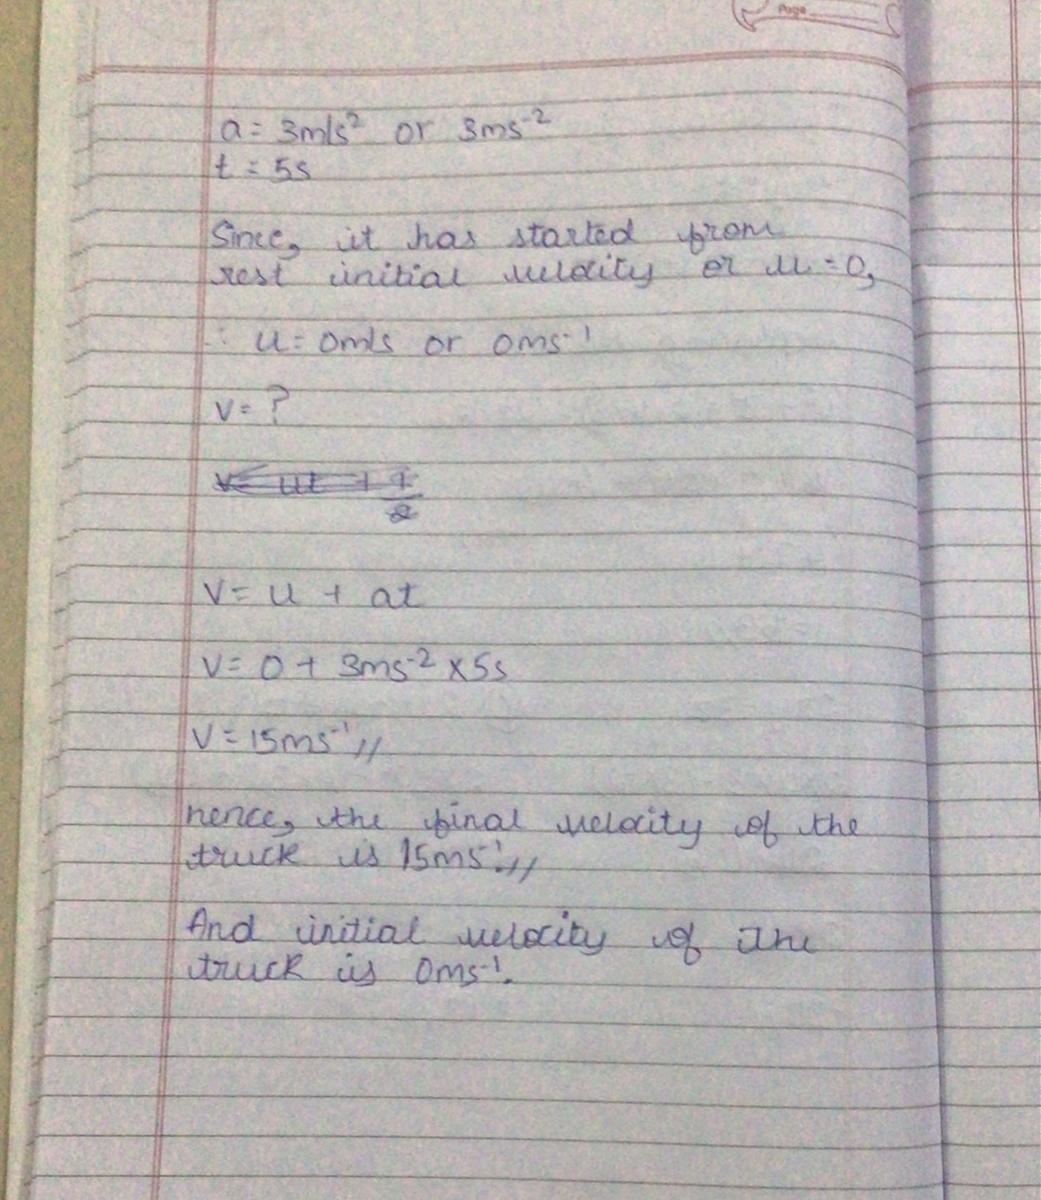 Page
a = 3m/s² or 3ms⁻²
t = 5s
Since, it has started from
rest initial velocity or u = 0,
∴ u = 0m/s or 0ms⁻¹
v = ?
v = ut + 1/2
v = u + at
v = 0 + 3ms⁻² × 5s
v = 15ms⁻¹//
hence, the final velocity of the
truck is 15ms⁻¹//
And initial velocity of the
truck is 0ms⁻¹.